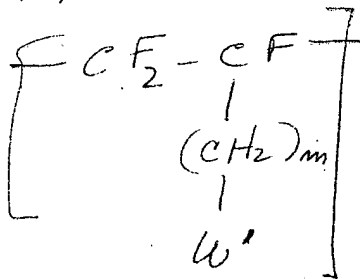 CF2-CF
(CH2)m
W'